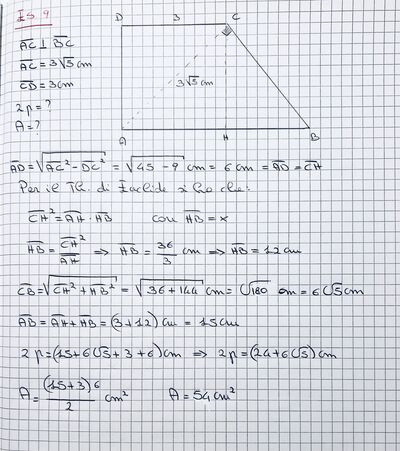 ES. 9
D 3 C
AC ⊥ BC
AC = 3√5 cm
CD = 3 cm
3√5 cm
2p = ?
A = ?
A H B
AD = √(AC² - DC²) = √(45 - 9) cm = 6 cm = AD = CH
Per il Th. di Euclide si ha che:
CH² = AH · HB con HB = x
HB = CH²/AH ⇒ HB = 36/3 cm ⇒ HB = 12 cm
CB = √(CH² + HB²) = √(36 + 144) cm = √180 cm = 6√5 cm
AB = AH + HB = (3 + 12) cm = 15 cm
2p = (15 + 6√5 + 3 + 6) cm ⇒ 2p = (24 + 6√5) cm
A = (15 + 3) 6 / 2 cm² A = 54 cm²